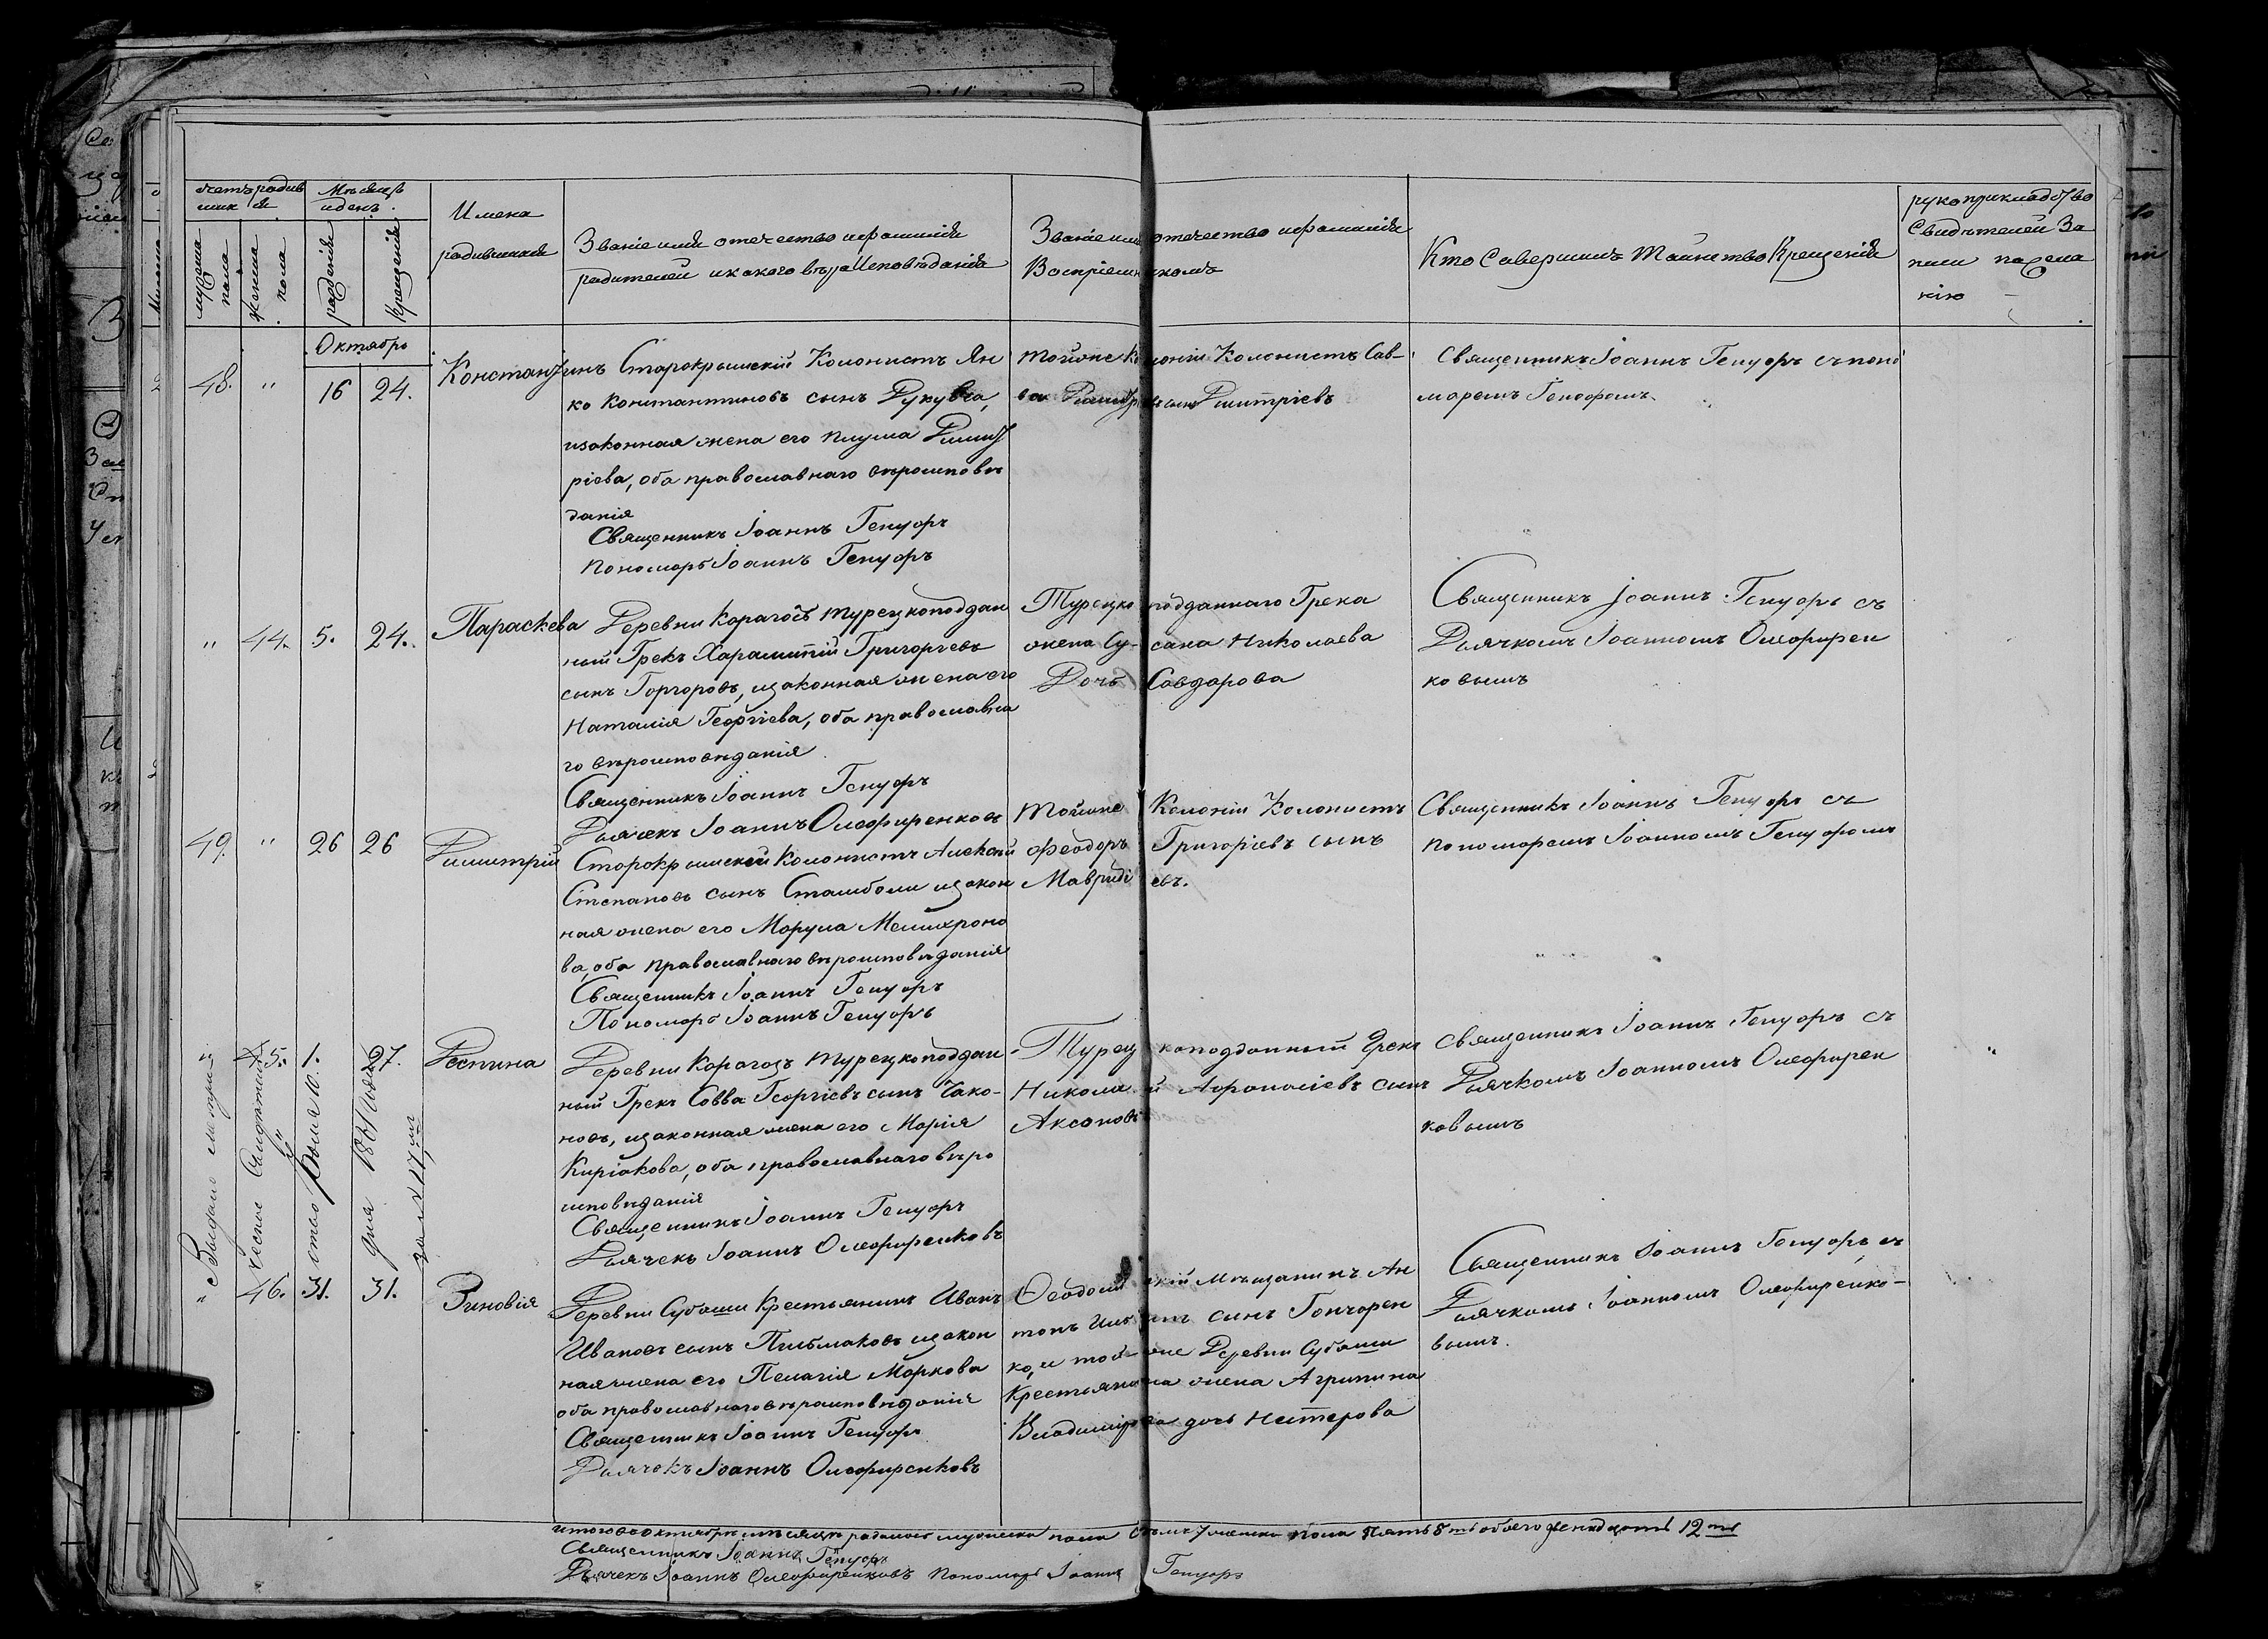 счетъ родив
шихся
Мѣсяцъ
и день
мужеска пола
женска пола
рожденія
Крещенія
Имена
родившихся
Званіе имя отечество и фамилія
родителей и какого вѣроисповѣданія
Званіе имя отечество и фамилія
Воспріемниковъ
Кто Совершилъ Таинство Крещенія
рукоприкладство
Свидѣтелей За
писи по жела
нію
Октябрь
48. " 16 24.
Константинъ
Старокрымскій Колонистъ Ян
ко Константиновъ сынъ
изаконная жена его Димит
ріева, оба православнаго вѣроисповѣ
данія
Священникъ Іоаннъ Генцоръ
Пономарь Іоаннъ Генцоръ
тойже Колоніи Колонистъ Сав-
ва Димитріевъ сынъ Димитріевъ
Священникъ Іоаннъ Генцоръ съ поно
маремъ Генцоромъ
" 44. 5. 24.
Параскева
Деревни Карагозъ турецкоподдан
ный Грекъ Харлампій Григорьевъ
сынъ Горгоровъ, изаконная жена его
Наталія Георгіева, оба православна
го вѣроисповѣданія
Священникъ Іоаннъ Генцоръ
Дьячекъ Іоаннъ Олефиренковъ
Турецкоподданнаго Грека
жена Сусана Николаева
Дочь Савдарова
Священникъ Іоаннъ Генцоръ съ
Дьячкомъ Іоанномъ Олефирен
ковымъ
49. " 26 26
Димитрій
Старокрымскій Колонистъ Алексѣй
Степановъ сынъ Стамболи изакон
ная жена его Марула Мелихроно
ва, оба православнаго вѣроисповѣданія
Священникъ Іоаннъ Генцоръ
Пономарь Іоаннъ Генцоръ
Тойже Колоніи Колонистъ
Феодоръ Григоріевъ сынъ
Мавридіевъ.
Священникъ Іоаннъ Генцоръ съ
пономаремъ Іоанномъ Генцоромъ
" 45. 1. 27.
Деспина
Деревни Карагозъ турецкоподдан
ный Грекъ Савва Георгіевъ сынъ Чако-
новъ, изаконная жена его Марія
Киріакова, оба православнаго вѣро
исповѣданія
Священникъ Іоаннъ Генцоръ
Дьячекъ Іоаннъ Олефиренковъ
Турецкоподданный Грекъ
Николай Афонасіевъ сынъ
Аксановъ
Священникъ Іоаннъ Генцоръ съ
Дьячкомъ Іоанномъ Олефирен
ковымъ
Выдано метрич
ческое Свидѣтель
ство
дня
за № 17
" 46. 31. 31.
Зиновія
Деревни Субаши Крестьянинъ Иванъ
Ивановъ сынъ Письмаковъ изакон
ная жена его Пелагія Маркова
оба православнаго вѣроисповѣданія
Священникъ Іоаннъ Генцоръ
Дьячекъ Іоаннъ Олефиренковъ
Ѳеодосійскій Мѣщанинъ Ан
тонъ сынъ Гончарен
ко, и той же Деревни Субаши
Крестьянина жена Агрипина
Владимірова дочь Нестерова
Священникъ Іоаннъ Генцоръ съ
Дьячкомъ Іоанномъ Олефиренко-
вымъ.
итого въ октябрѣ мѣсяцѣ родилось мужеска пола семь 7 женска пола пять 5ть обоего двенадцать 12ть
Священникъ Іоаннъ Генцоръ
Дьячекъ Іоаннъ Олефиренковъ Пономарь Іоаннъ Генцоръ